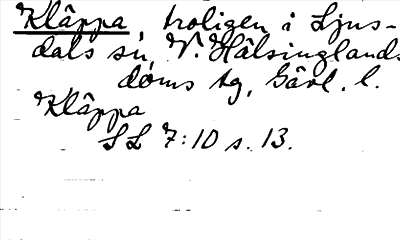 Kläppa, troligen i Ljus-
dals sn, V. Hälsinglands
doms sg, Gävl. l.
Kläppa
SL 7:10 s. 13.